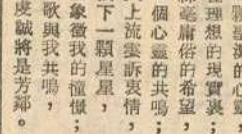 的心
理想的現實裏；
絲毫庸俗的希望，
個心靈的共鳴；
上流雲訴衷情，
下一顆星星，
象徵我的憧憬；
歌與我共鳴，
虔誠將是芳鄰。